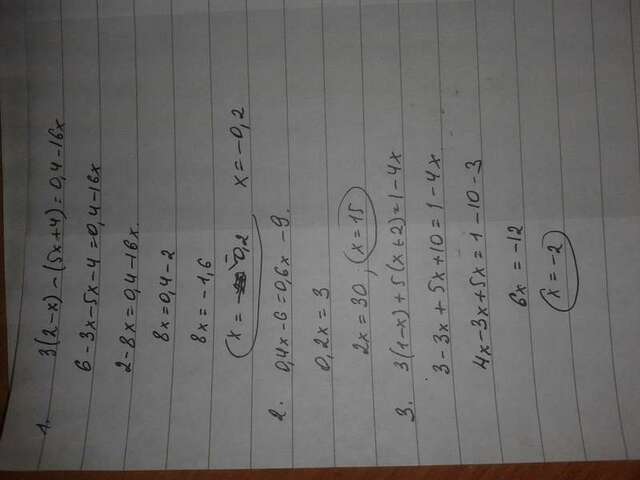 1. 3(2-x)-(5x+4)=0,4-16x
6-3x-5x-4=0,4-16x
2-8x=0,4-16x
8x=0,4-2
8x=-1,6
x= -0,2 x=-0,2
2. 0,4x-6=0,6x-9.
0,2x=3
2x=30; x=15
3. 3(1-x)+5(x+2)=1-4x
3-3x+5x+10=1-4x
4x-3x+5x=1-10-3
6x=-12
x=-2